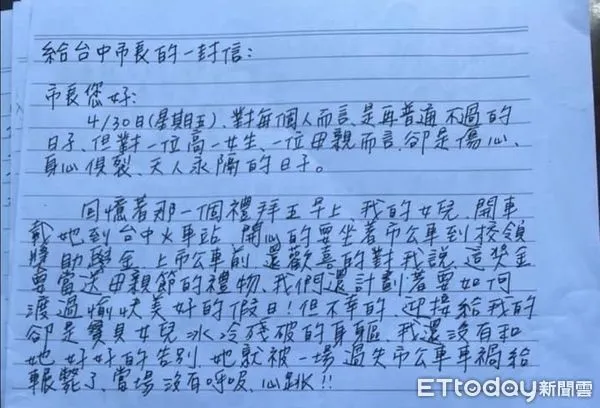 給台中市長的一封信:
市長您好:
4/30日(星期五)、對每個人而言、是再普通不過的
日子、但對一位高一女生、一位母親而言、卻是傷心、
身心俱裂、天人永隔的日子。
回憶著那一個禮拜五早上、我的女兒、開車
載她到台中火車站、開心的要坐著市公車到校領
獎助學金、上市公車前、還歡喜的對我說、這獎金
要當送母親節的禮物、我們還計劃著要如何
渡過愉快美好的假日!但不幸的、迎接給我的
卻是寶貝女兒冰冷殘破的身軀、我還沒有和
她好好的告別、她就被一場過失市公車車禍給
輾斃了、當場沒有呼吸、心跳!!
ETtoday新聞雲